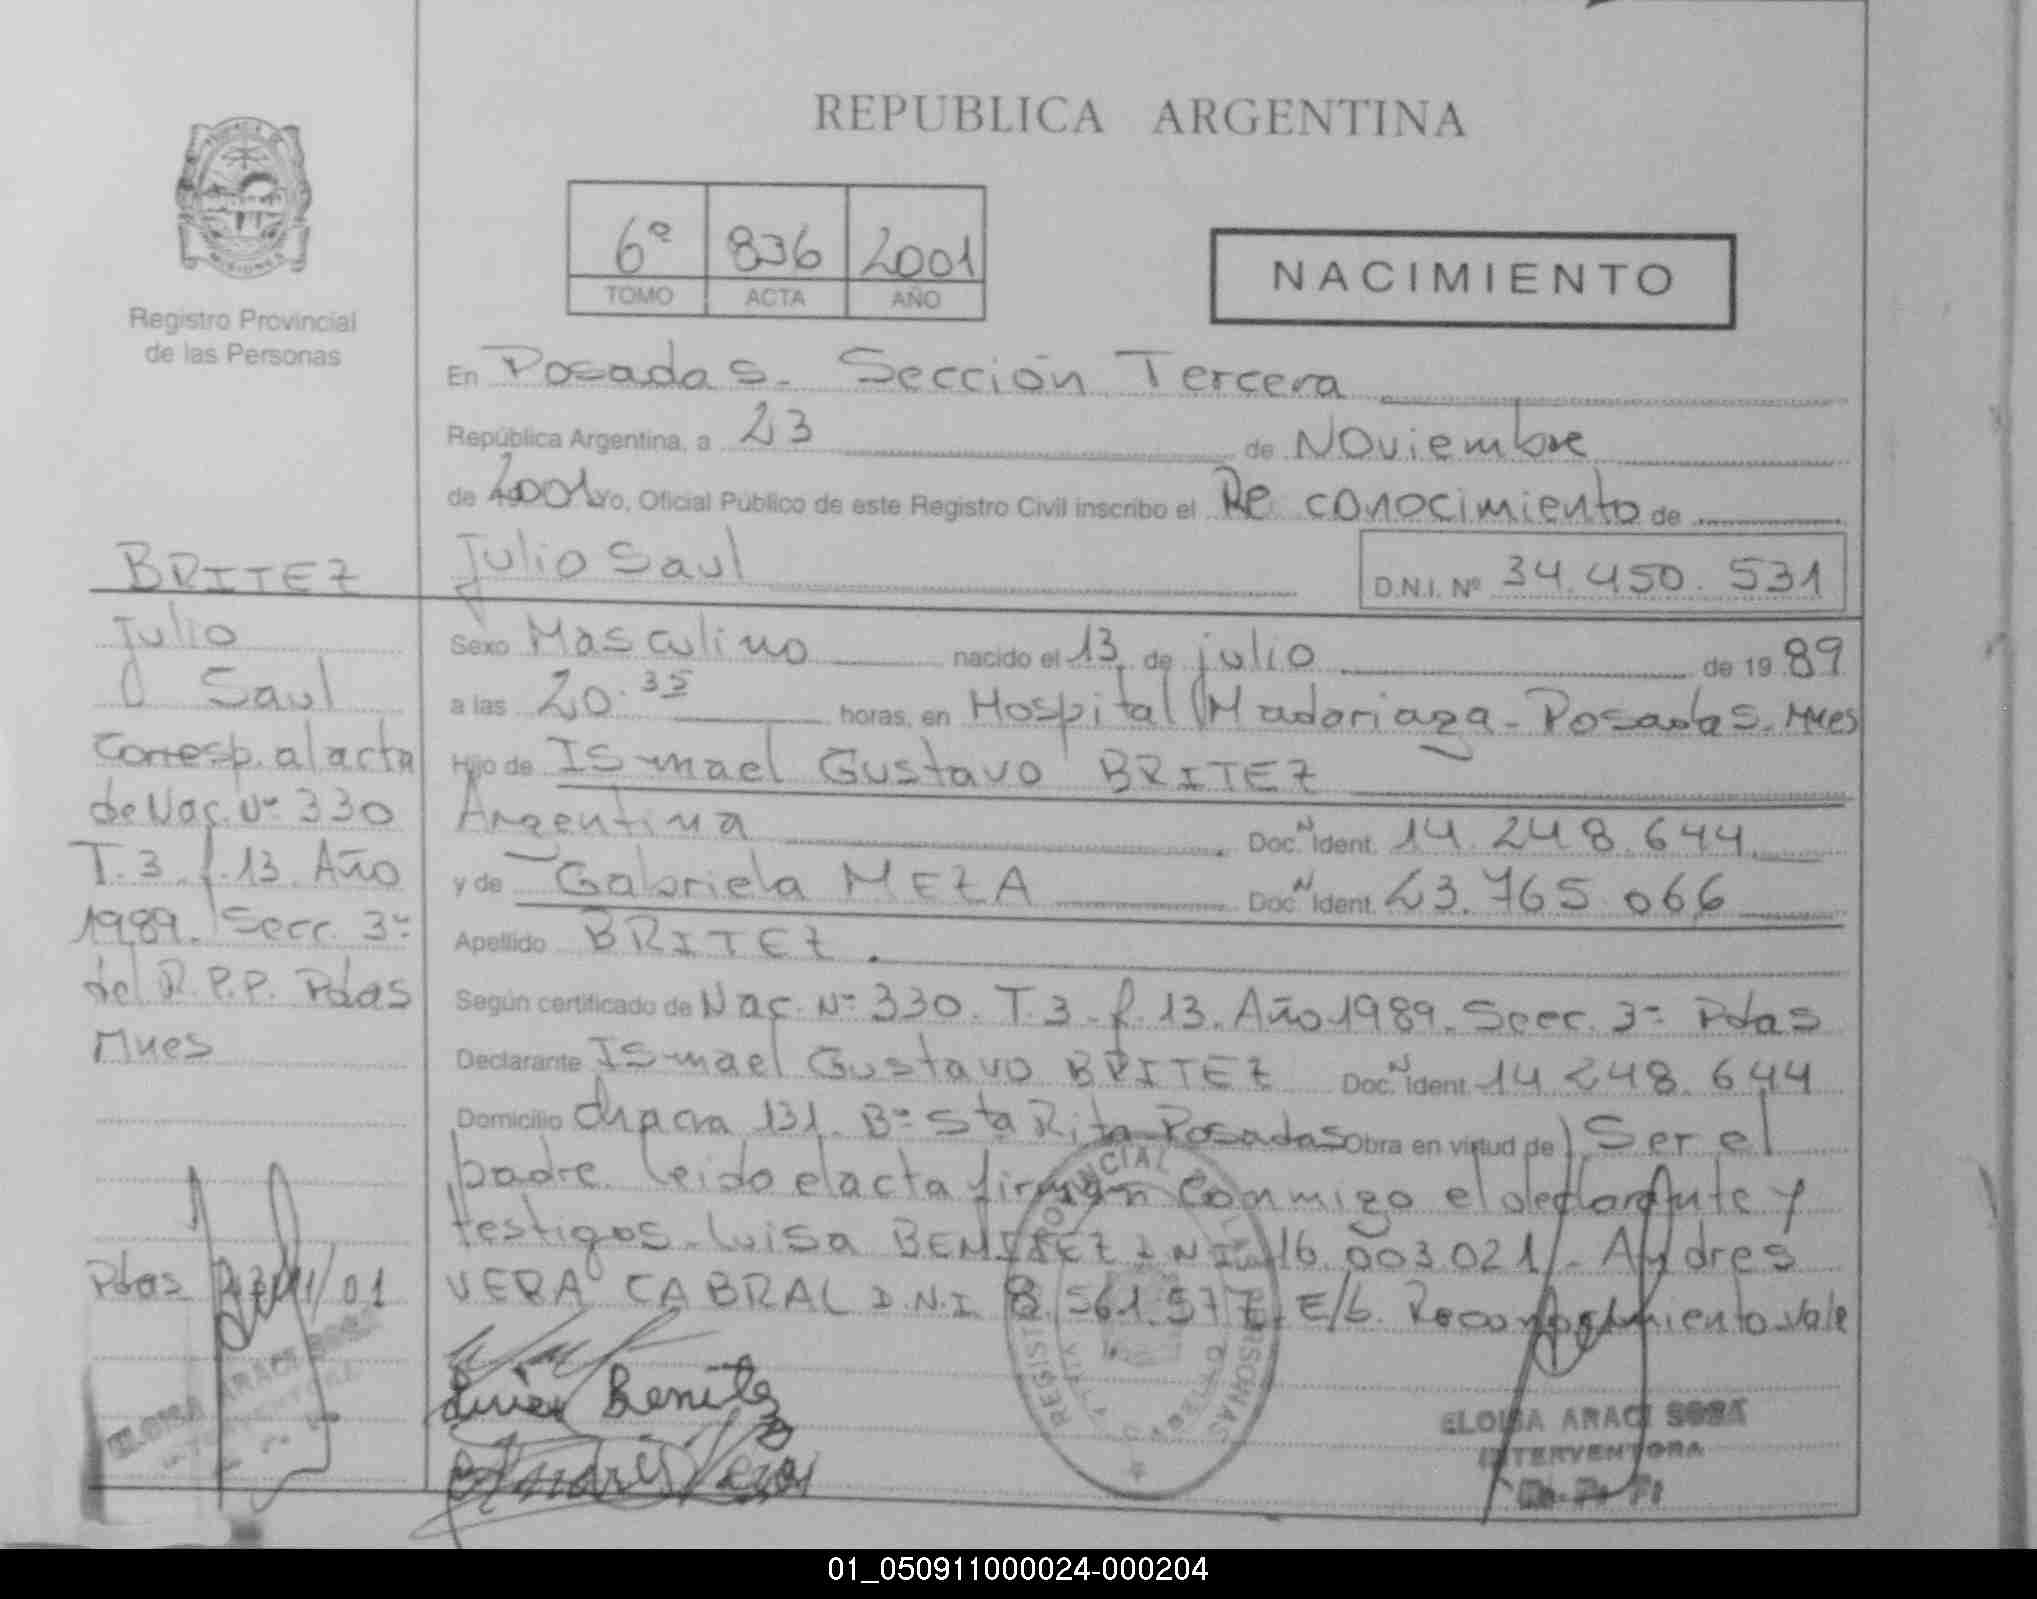 REPUBLICA ARGENTINA
6º 836 2001
TOMO ACTA AÑO
NACIMIENTO
Registro Provincial
de las Personas
En Posadas. Sección Tercera
República Argentina, a 23 de Noviembre
de 2001 yo, Oficial Público de este Registro Civil inscribo el Reconocimiento de
Julio Saul D.N.I. Nº 34.450.531
Sexo Masculino nacido el 13 de julio de 1989
a las 20.35 horas, en Hospital Madariaga - Posadas. Mnes
Hijo de Ismael Gustavo BRITEZ
Argentina Doc. N Ident. 14.248.644
y de Gabriela MEZA Doc. N Ident. 23.765.066
Apellido BRITEZ.
Según certificado de Nac. Nº 330. T.3. f.13. Año 1989. Secc. 3ª Pdas
Declarante Ismael Gustavo BRITEZ Doc. N Ident. 14.248.644
Domicilio Chacra 131. Bº Sta Rita Posadas Obra en virtud de Ser el
padre. leido el acta firman conmigo el declarante y
testigos. Luisa BENITEZ D.N.I. 16.003.021. Andres
VERA CABRAL D.N.I 8.561.577. E/L. Reconocimiento. Vale
BRITEZ
Julio
Saul
Corresp. al acta
de Nac. Nº 330
T.3. f.13. Año
1989. Secc. 3ª
del R.P.P. Pdas
Mnes
Pdas 23/11/01
ELOISA ARACI SOSA
INTERVENTORA
Benitez
REGISTRO PROVINCIAL DE LAS PERSONAS
ELOISA ARACI SOSA
INTERVENTORA
R. P. P.
01_050911000024-000204